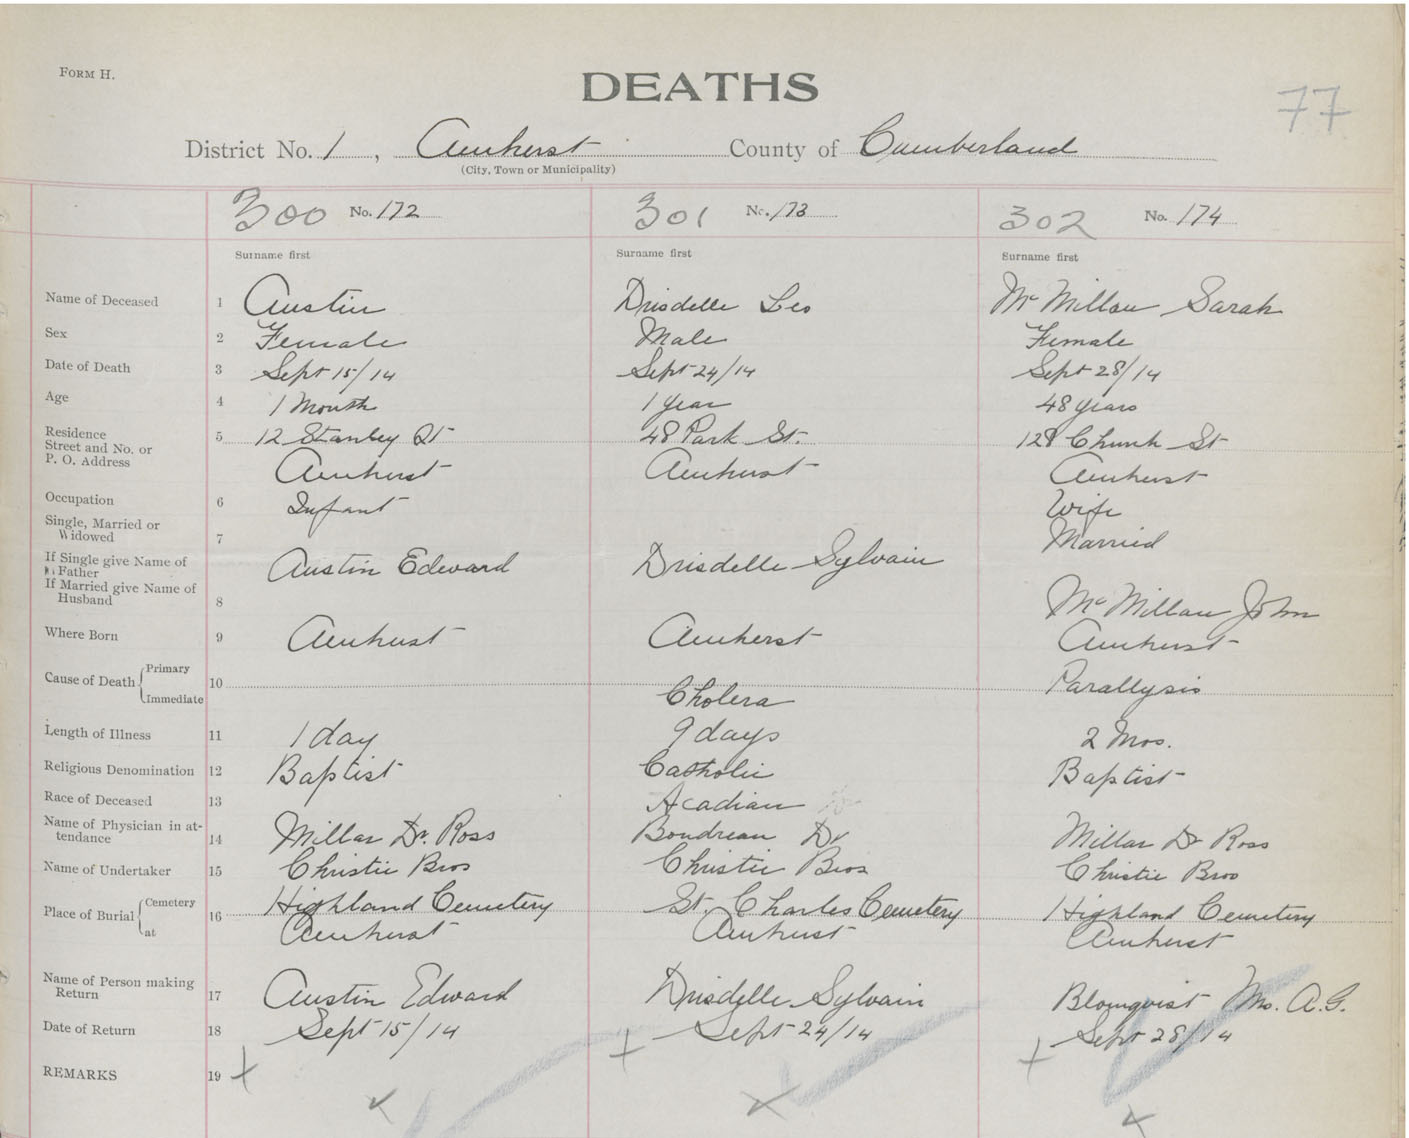 FORM H.
DEATHS
77
District No. 1, Amherst County of Cumberland
(City, Town or Municipality)
300 No. 172 301 No. 173 302 No. 174
Surname first Surname first Surname first
Name of Deceased 1 Austin Drisdelle Leo McMillan Sarah
Sex 2 Female Male Female
Date of Death 3 Sept 15/14 Sept 24/14 Sept 28/14
Age 4 1 Month 1 year 48 years
Residence
Street and No. or 5 12 Stanley St 48 Park St. 128 Church St
P. O. Address Amherst Amherst Amherst
Occupation 6 Infant Wife
Single, Married or
Widowed 7 Married
If Single give Name of
Father Austin Edward Drisdelle Sylvain
If Married give Name of
Husband 8 McMillan John
Where Born 9 Amherst Amherst Amherst
Cause of Death Primary 10 Parallysis
Immediate Cholera
Length of Illness 11 1 day 9 days 2 Mos.
Religious Denomination 12 Baptist Catholic Baptist
Race of Deceased 13 Acadian
Name of Physician in at-
tendance 14 Millar Dr. Ross Boudreau Dr Millar Dr Ross
Name of Undertaker 15 Christie Bros Christie Bros Christie Bros
Place of Burial Cemetery 16 Highland Cemetery St. Charles Cemetery Highland Cemetery
at Amherst Amherst Amherst
Name of Person making
Return 17 Austin Edward Drisdelle Sylvain Blomqvist Mrs. A.G.
Date of Return 18 Sept 15/14 Sept 24/14 Sept 28/14
REMARKS 19